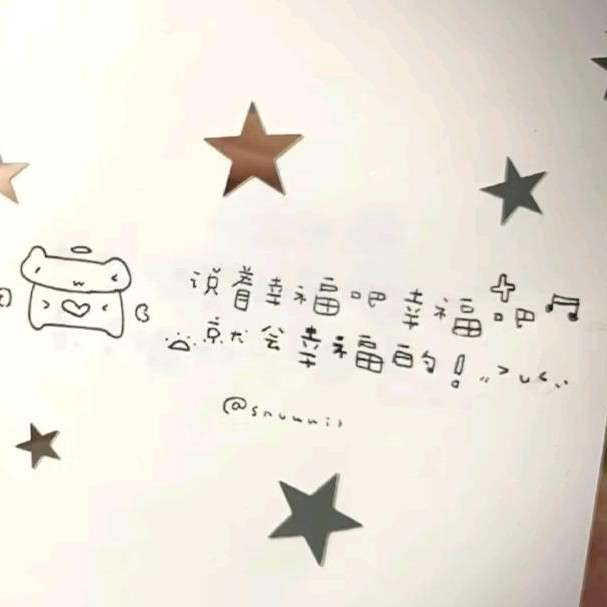 说着幸福吧幸福吧
就会幸福的!